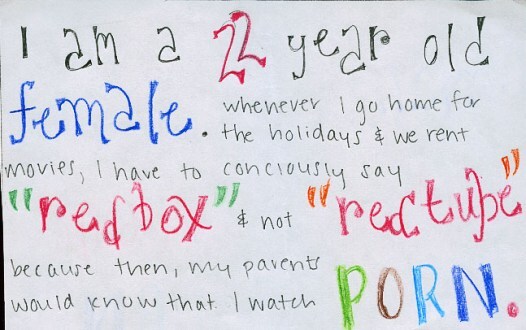 I am a 22 year old
female. whenever I go home for
the holidays & we rent
movies, I have to conciously say
"redbox" & not "redtube"
because then, my parents
would know that I watch PORN.